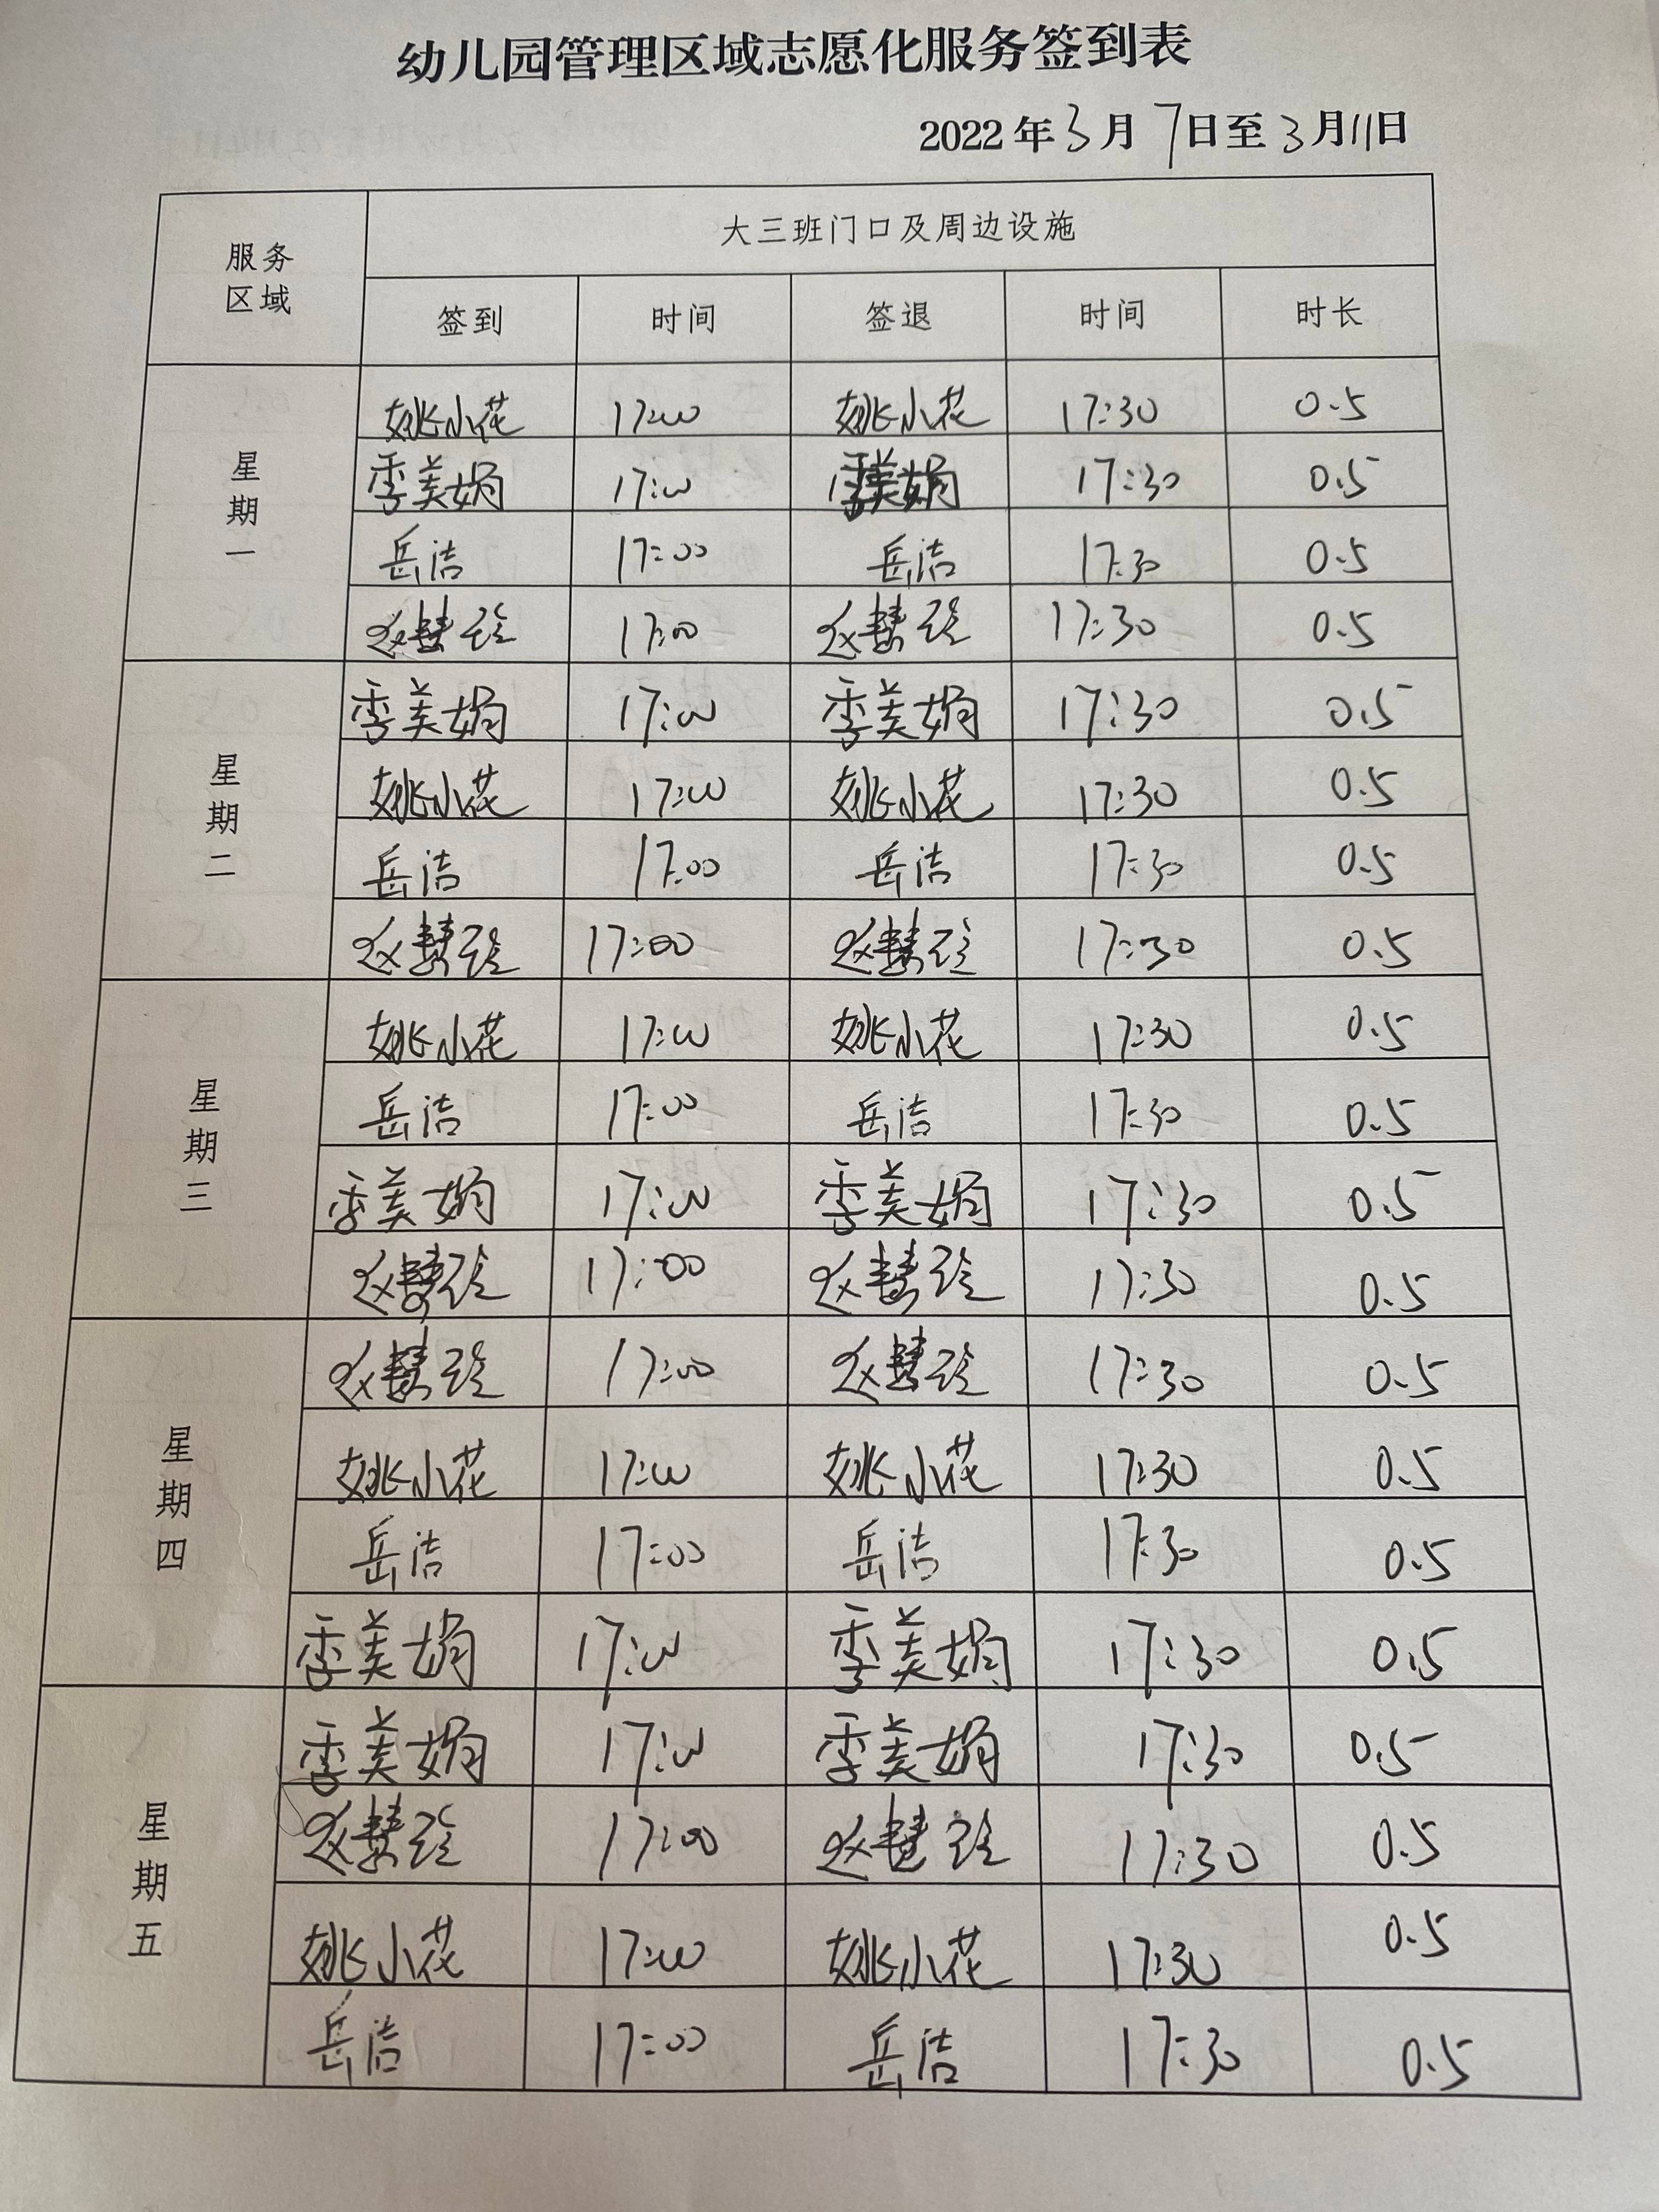 幼儿园管理区域志愿化服务签到表
2022年3月7日至3月11日
服务区域 大三班门口及周边设施
签到 时间 签退 时间 时长
星期一
姚小花 17:00 姚小花 17:30 0.5
季美娟 17:00 季美娟 17:30 0.5
岳洁 17:00 岳洁 17:30 0.5
赵慧玲 17:00 赵慧玲 17:30 0.5
星期二
季美娟 17:00 季美娟 17:30 0.5
姚小花 17:00 姚小花 17:30 0.5
岳洁 17:00 岳洁 17:30 0.5
赵慧玲 17:00 赵慧玲 17:30 0.5
星期三
姚小花 17:00 姚小花 17:30 0.5
岳洁 17:00 岳洁 17:30 0.5
季美娟 17:00 季美娟 17:30 0.5
赵慧玲 17:00 赵慧玲 17:30 0.5
星期四
赵慧玲 17:00 赵慧玲 17:30 0.5
姚小花 17:00 姚小花 17:30 0.5
岳洁 17:00 岳洁 17:30 0.5
季美娟 17:00 季美娟 17:30 0.5
星期五
季美娟 17:00 季美娟 17:30 0.5
赵慧玲 17:00 赵慧玲 17:30 0.5
姚小花 17:00 姚小花 17:30 0.5
岳洁 17:00 岳洁 17:30 0.5